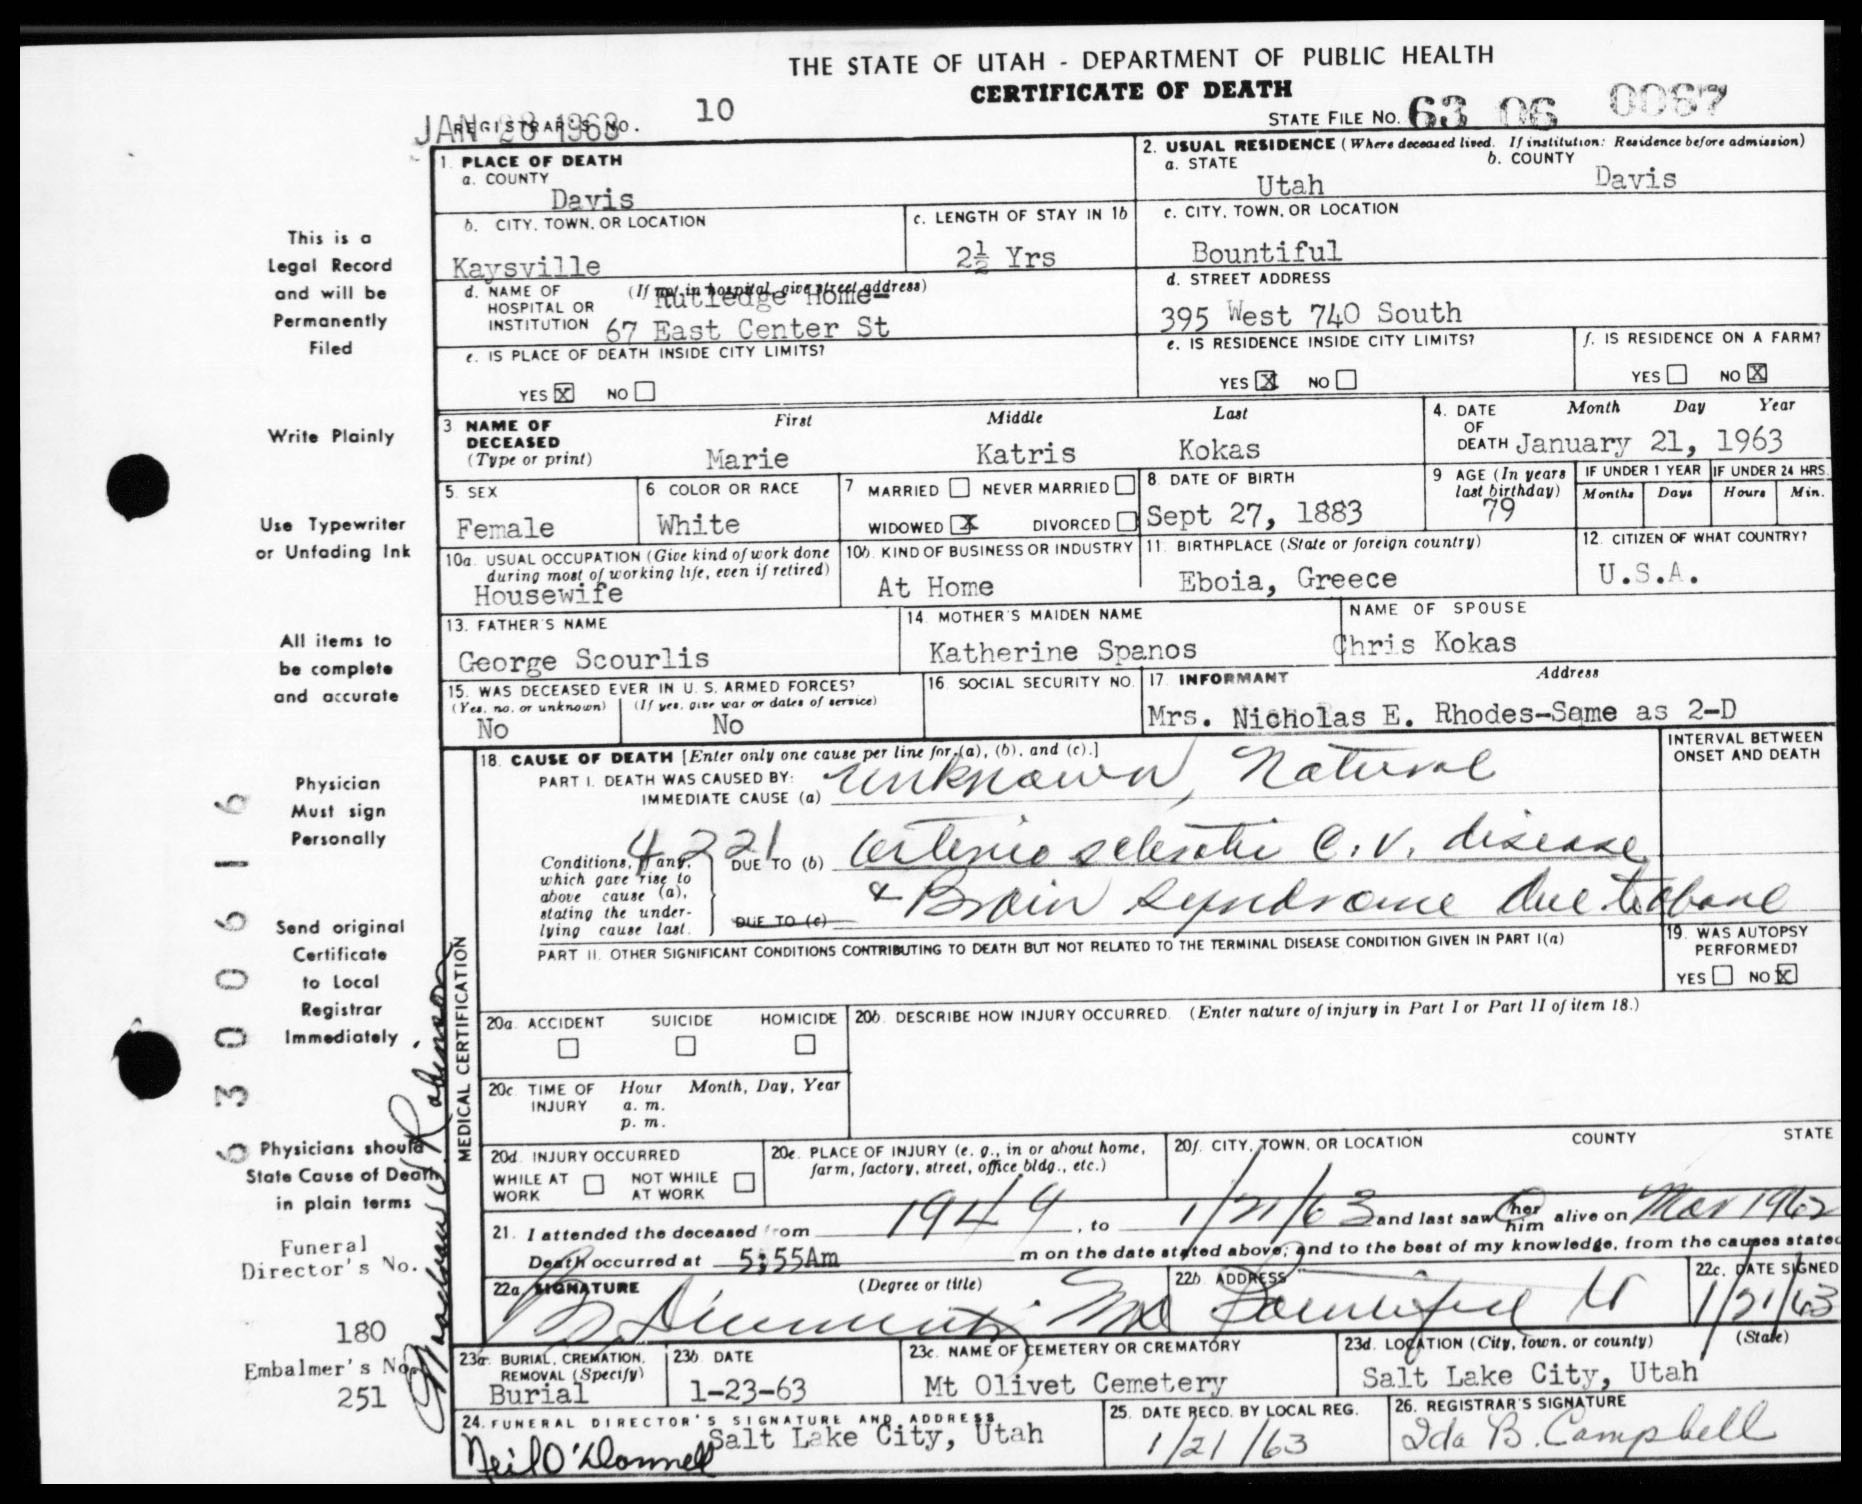 THE STATE OF UTAH - DEPARTMENT OF PUBLIC HEALTH
CERTIFICATE OF DEATH
JAN 28 1963
REGISTRAR'S NO. 10
STATE FILE NO. 63 06 0067
1. PLACE OF DEATH
a. COUNTY
Davis
2. USUAL RESIDENCE (Where deceased lived. If institution: Residence before admission)
a. STATE
Utah
b. COUNTY
Davis
b. CITY, TOWN, OR LOCATION
Kaysville
c. LENGTH OF STAY IN 1b
2½ Yrs
c. CITY, TOWN, OR LOCATION
Bountiful
d. NAME OF HOSPITAL OR INSTITUTION
(If not in hospital, give street address)
Rutledge Home-
67 East Center St
d. STREET ADDRESS
395 West 740 South
e. IS PLACE OF DEATH INSIDE CITY LIMITS?
YES X NO
e. IS RESIDENCE INSIDE CITY LIMITS?
YES X NO
f. IS RESIDENCE ON A FARM?
YES NO X
3 NAME OF DECEASED
(Type or print)
First Middle Last
Marie Katris Kokas
4. DATE OF DEATH
Month Day Year
January 21, 1963
5. SEX
Female
6 COLOR OR RACE
White
7 MARRIED NEVER MARRIED
WIDOWED X DIVORCED
8. DATE OF BIRTH
Sept 27, 1883
9 AGE (In years last birthday)
79
IF UNDER 1 YEAR
Months Days
IF UNDER 24 HRS.
Hours Min.
10a. USUAL OCCUPATION (Give kind of work done during most of working life, even if retired)
Housewife
10b. KIND OF BUSINESS OR INDUSTRY
At Home
11. BIRTHPLACE (State or foreign country)
Eboia, Greece
12. CITIZEN OF WHAT COUNTRY?
U.S.A.
13. FATHER'S NAME
George Scourlis
14. MOTHER'S MAIDEN NAME
Katherine Spanos
NAME OF SPOUSE
Chris Kokas
15. WAS DECEASED EVER IN U. S. ARMED FORCES?
(Yes, no, or unknown) (If yes, give war or dates of service)
No No
16. SOCIAL SECURITY NO.
17. INFORMANT Address
Mrs. Nicholas E. Rhodes-Same as 2-D
MEDICAL CERTIFICATION
18. CAUSE OF DEATH [Enter only one cause per line for (a), (b), and (c).]
INTERVAL BETWEEN ONSET AND DEATH
PART I. DEATH WAS CAUSED BY:
IMMEDIATE CAUSE (a) Unknown, Natural
Conditions, if any, which gave rise to above cause (a), stating the underlying cause last.
4221
DUE TO (b) arterio sclerotic C. V. disease
DUE TO (c) & Brain Syndrome due to above
PART II. OTHER SIGNIFICANT CONDITIONS CONTRIBUTING TO DEATH BUT NOT RELATED TO THE TERMINAL DISEASE CONDITION GIVEN IN PART I(a)
19. WAS AUTOPSY PERFORMED?
YES NO X
20a. ACCIDENT SUICIDE HOMICIDE
20b. DESCRIBE HOW INJURY OCCURRED. (Enter nature of injury in Part I or Part II of item 18.)
20c. TIME OF INJURY
Hour Month, Day, Year
a. m.
p. m.
20d. INJURY OCCURRED
WHILE AT WORK NOT WHILE AT WORK
20e. PLACE OF INJURY (e. g., in or about home, farm, factory, street, office bldg., etc.)
20f. CITY, TOWN, OR LOCATION COUNTY STATE
21. I attended the deceased from 1949, to 1/21/63 and last saw her him alive on Mar 1962
Death occurred at 5:55Am m on the date stated above; and to the best of my knowledge, from the causes stated
22a. SIGNATURE (Degree or title)
MD
22b. ADDRESS
Bountiful U
22c. DATE SIGNED
1/21/63
23a. BURIAL, CREMATION, REMOVAL (Specify)
Burial
23b. DATE
1-23-63
23c. NAME OF CEMETERY OR CREMATORY
Mt Olivet Cemetery
23d. LOCATION (City, town, or county) (State)
Salt Lake City, Utah
24. FUNERAL DIRECTOR'S SIGNATURE AND ADDRESS
Neil O'Donnell Salt Lake City, Utah
25. DATE RECD. BY LOCAL REG.
1/21/63
26. REGISTRAR'S SIGNATURE
Ida B. Campbell
This is a
Legal Record
and will be
Permanently
Filed
Write Plainly
Use Typewriter
or Unfading Ink
All items to
be complete
and accurate
Physician
Must sign
Personally
Send original
Certificate
to Local
Registrar
Immediately
Physicians should
State Cause of Death
in plain terms
Funeral
Director's No.
180
Embalmer's No.
251
Robinson